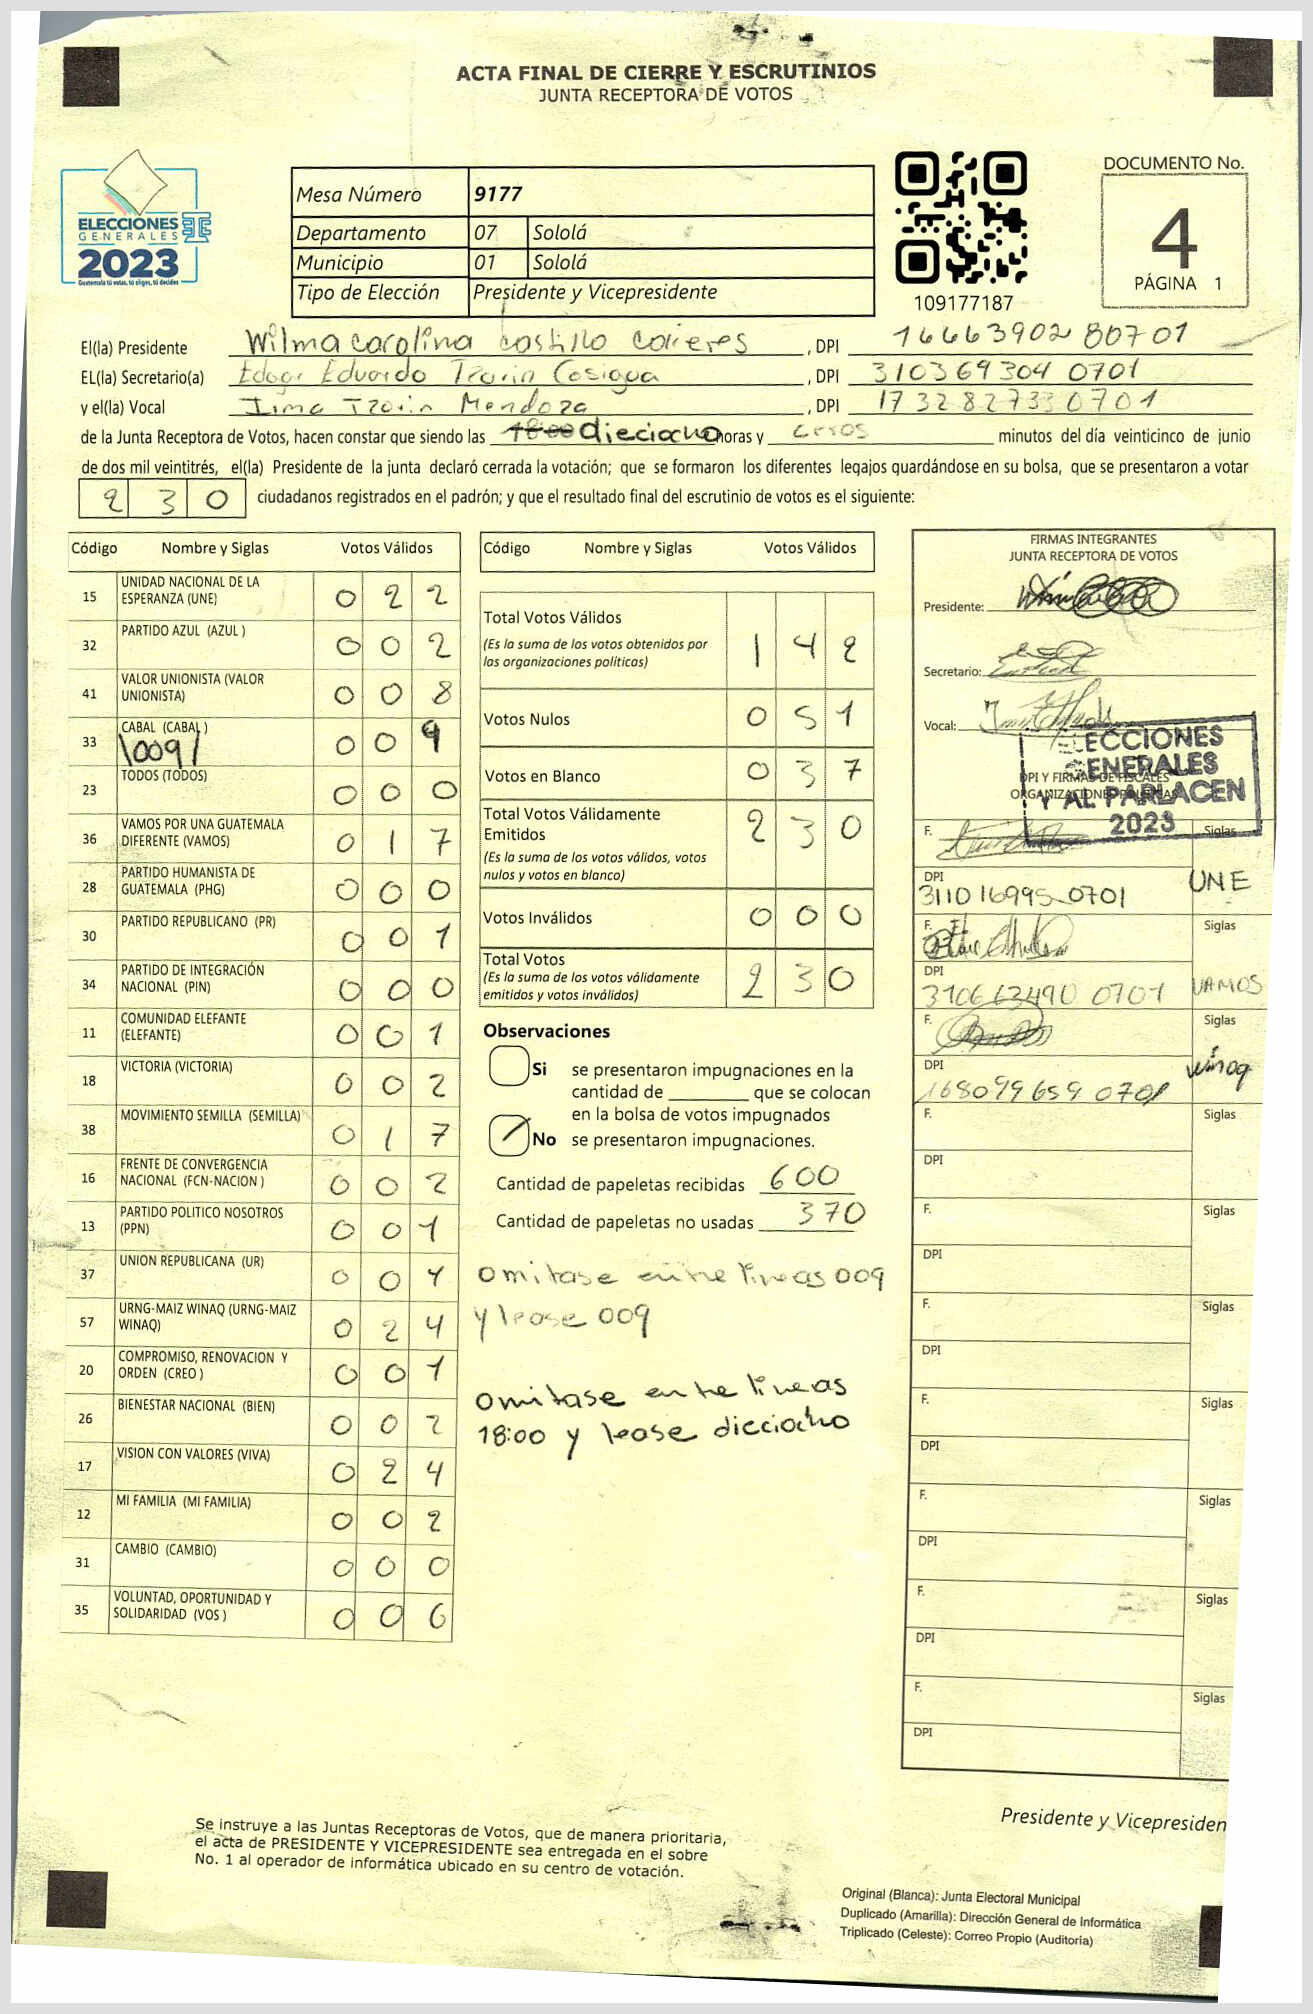 ACTA FINAL DE CIERRE Y ESCRUTINIOS
JUNTA RECEPTORA DE VOTOS
ELECCIONES
GENERALES
2023
Guatemala tú votas, tú eliges, tú decides
Mesa Número 9177
Departamento 07 Sololá
Municipio 01 Sololá
Tipo de Elección Presidente y Vicepresidente
109177187
DOCUMENTO No.
4
PÁGINA 1
El(la) Presidente Wilma carolina castillo , DPI 1666390280701
EL(la) Secretario(a) Edgar Eduardo Tzorin Cosigua , DPI 310369304 0701
y el(la) Vocal Irma Tzorin Mendoza , DPI 1732827330701
de la Junta Receptora de Votos, hacen constar que siendo las 18:00 dieciocho horas y ceros minutos del día veinticinco de junio
de dos mil veintitrés, el(la) Presidente de la junta declaró cerrada la votación; que se formaron los diferentes legajos guardándose en su bolsa, que se presentaron a votar
230 ciudadanos registrados en el padrón; y que el resultado final del escrutinio de votos es el siguiente:
Código Nombre y Siglas Votos Válidos
15 UNIDAD NACIONAL DE LA ESPERANZA (UNE) 022
32 PARTIDO AZUL (AZUL ) 002
41 VALOR UNIONISTA (VALOR UNIONISTA) 008
33 CABAL (CABAL ) 009
\009/
23 TODOS (TODOS) 000
36 VAMOS POR UNA GUATEMALA DIFERENTE (VAMOS) 017
28 PARTIDO HUMANISTA DE GUATEMALA (PHG) 000
30 PARTIDO REPUBLICANO (PR) 001
34 PARTIDO DE INTEGRACIÓN NACIONAL (PIN) 000
11 COMUNIDAD ELEFANTE (ELEFANTE) 001
18 VICTORIA (VICTORIA) 002
38 MOVIMIENTO SEMILLA (SEMILLA) 017
16 FRENTE DE CONVERGENCIA NACIONAL (FCN-NACION ) 002
13 PARTIDO POLITICO NOSOTROS (PPN) 001
37 UNION REPUBLICANA (UR) 001
57 URNG-MAIZ WINAQ (URNG-MAIZ WINAQ) 024
20 COMPROMISO, RENOVACION Y ORDEN (CREO ) 001
26 BIENESTAR NACIONAL (BIEN) 002
17 VISION CON VALORES (VIVA) 024
12 MI FAMILIA (MI FAMILIA) 002
31 CAMBIO (CAMBIO) 000
35 VOLUNTAD, OPORTUNIDAD Y SOLIDARIDAD (VOS ) 006
Código Nombre y Siglas Votos Válidos
Total Votos Válidos 142
(Es la suma de los votos obtenidos por
las organizaciones políticas)
Votos Nulos 051
Votos en Blanco 037
Total Votos Válidamente
Emitidos 230
(Es la suma de los votos válidos, votos
nulos y votos en blanco)
Votos Inválidos 000
Total Votos 230
(Es la suma de los votos válidamente
emitidos y votos inválidos)
Observaciones
Si se presentaron impugnaciones en la
cantidad de ________ que se colocan
en la bolsa de votos impugnados
No se presentaron impugnaciones.
Cantidad de papeletas recibidas 600
Cantidad de papeletas no usadas 370
omitase entre lineas 009
y lease 009
omitase entre lineas
18:00 y lease dieciocho
FIRMAS INTEGRANTES
JUNTA RECEPTORA DE VOTOS
Presidente:
Secretario:
Vocal:
ELECCIONES
GENERALES
Y AL PARLACEN
2023
DPI Y FIRMAS DE FISCALES
ORGANIZACIONES POLÍTICAS
F. Siglas
DPI
311016995 0701 UNE
F. Siglas
DPI
310663490 0701 VAMOS
F. Siglas
DPI
168099659 0701 winaq
F. Siglas
DPI
F. Siglas
DPI
F. Siglas
DPI
F. Siglas
DPI
F. Siglas
DPI
F. Siglas
DPI
F. Siglas
DPI
Presidente y Vicepresiden
Se instruye a las Juntas Receptoras de Votos, que de manera prioritaria,
el acta de PRESIDENTE Y VICEPRESIDENTE sea entregada en el sobre
No. 1 al operador de informática ubicado en su centro de votación.
Original (Blanca): Junta Electoral Municipal
Duplicado (Amarilla): Dirección General de Informática
Triplicado (Celeste): Correo Propio (Auditoría)